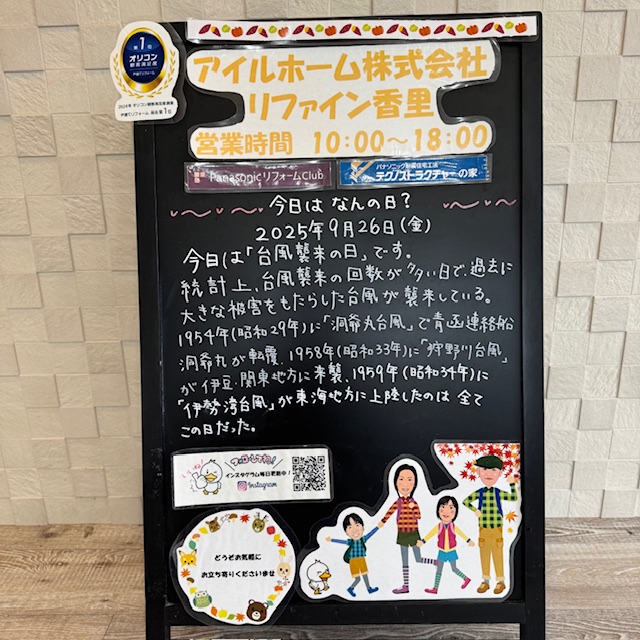 第1位
オリコン
顧客満足度
戸建てリフォーム
2024年 オリコン顧客満足度調査
戸建てリフォーム 総合 第1位
アイルホーム株式会社
リファイン香里
営業時間 10:00～18:00
PanasonicリフォームClub
パナソニック耐震住宅工法
テクノストラクチャーの家
今日は なんの日？
2025年9月26日(金)
今日は「台風襲来の日」です。
統計上、台風襲来の回数が多い日で、過去に
大きな被害をもたらした台風が襲来している。
1954年(昭和29年)に「洞爺丸台風」で青函連絡船
洞爺丸が転覆、1958年(昭和33年)に「狩野川台風」
が伊豆・関東地方に来襲、1959年(昭和34年)に
「伊勢湾台風」が東海地方に上陸したのは 全て
この日だった。
インスタグラム毎日更新中！
Instagram
どうぞお気軽に
お立ち寄りくださいませ